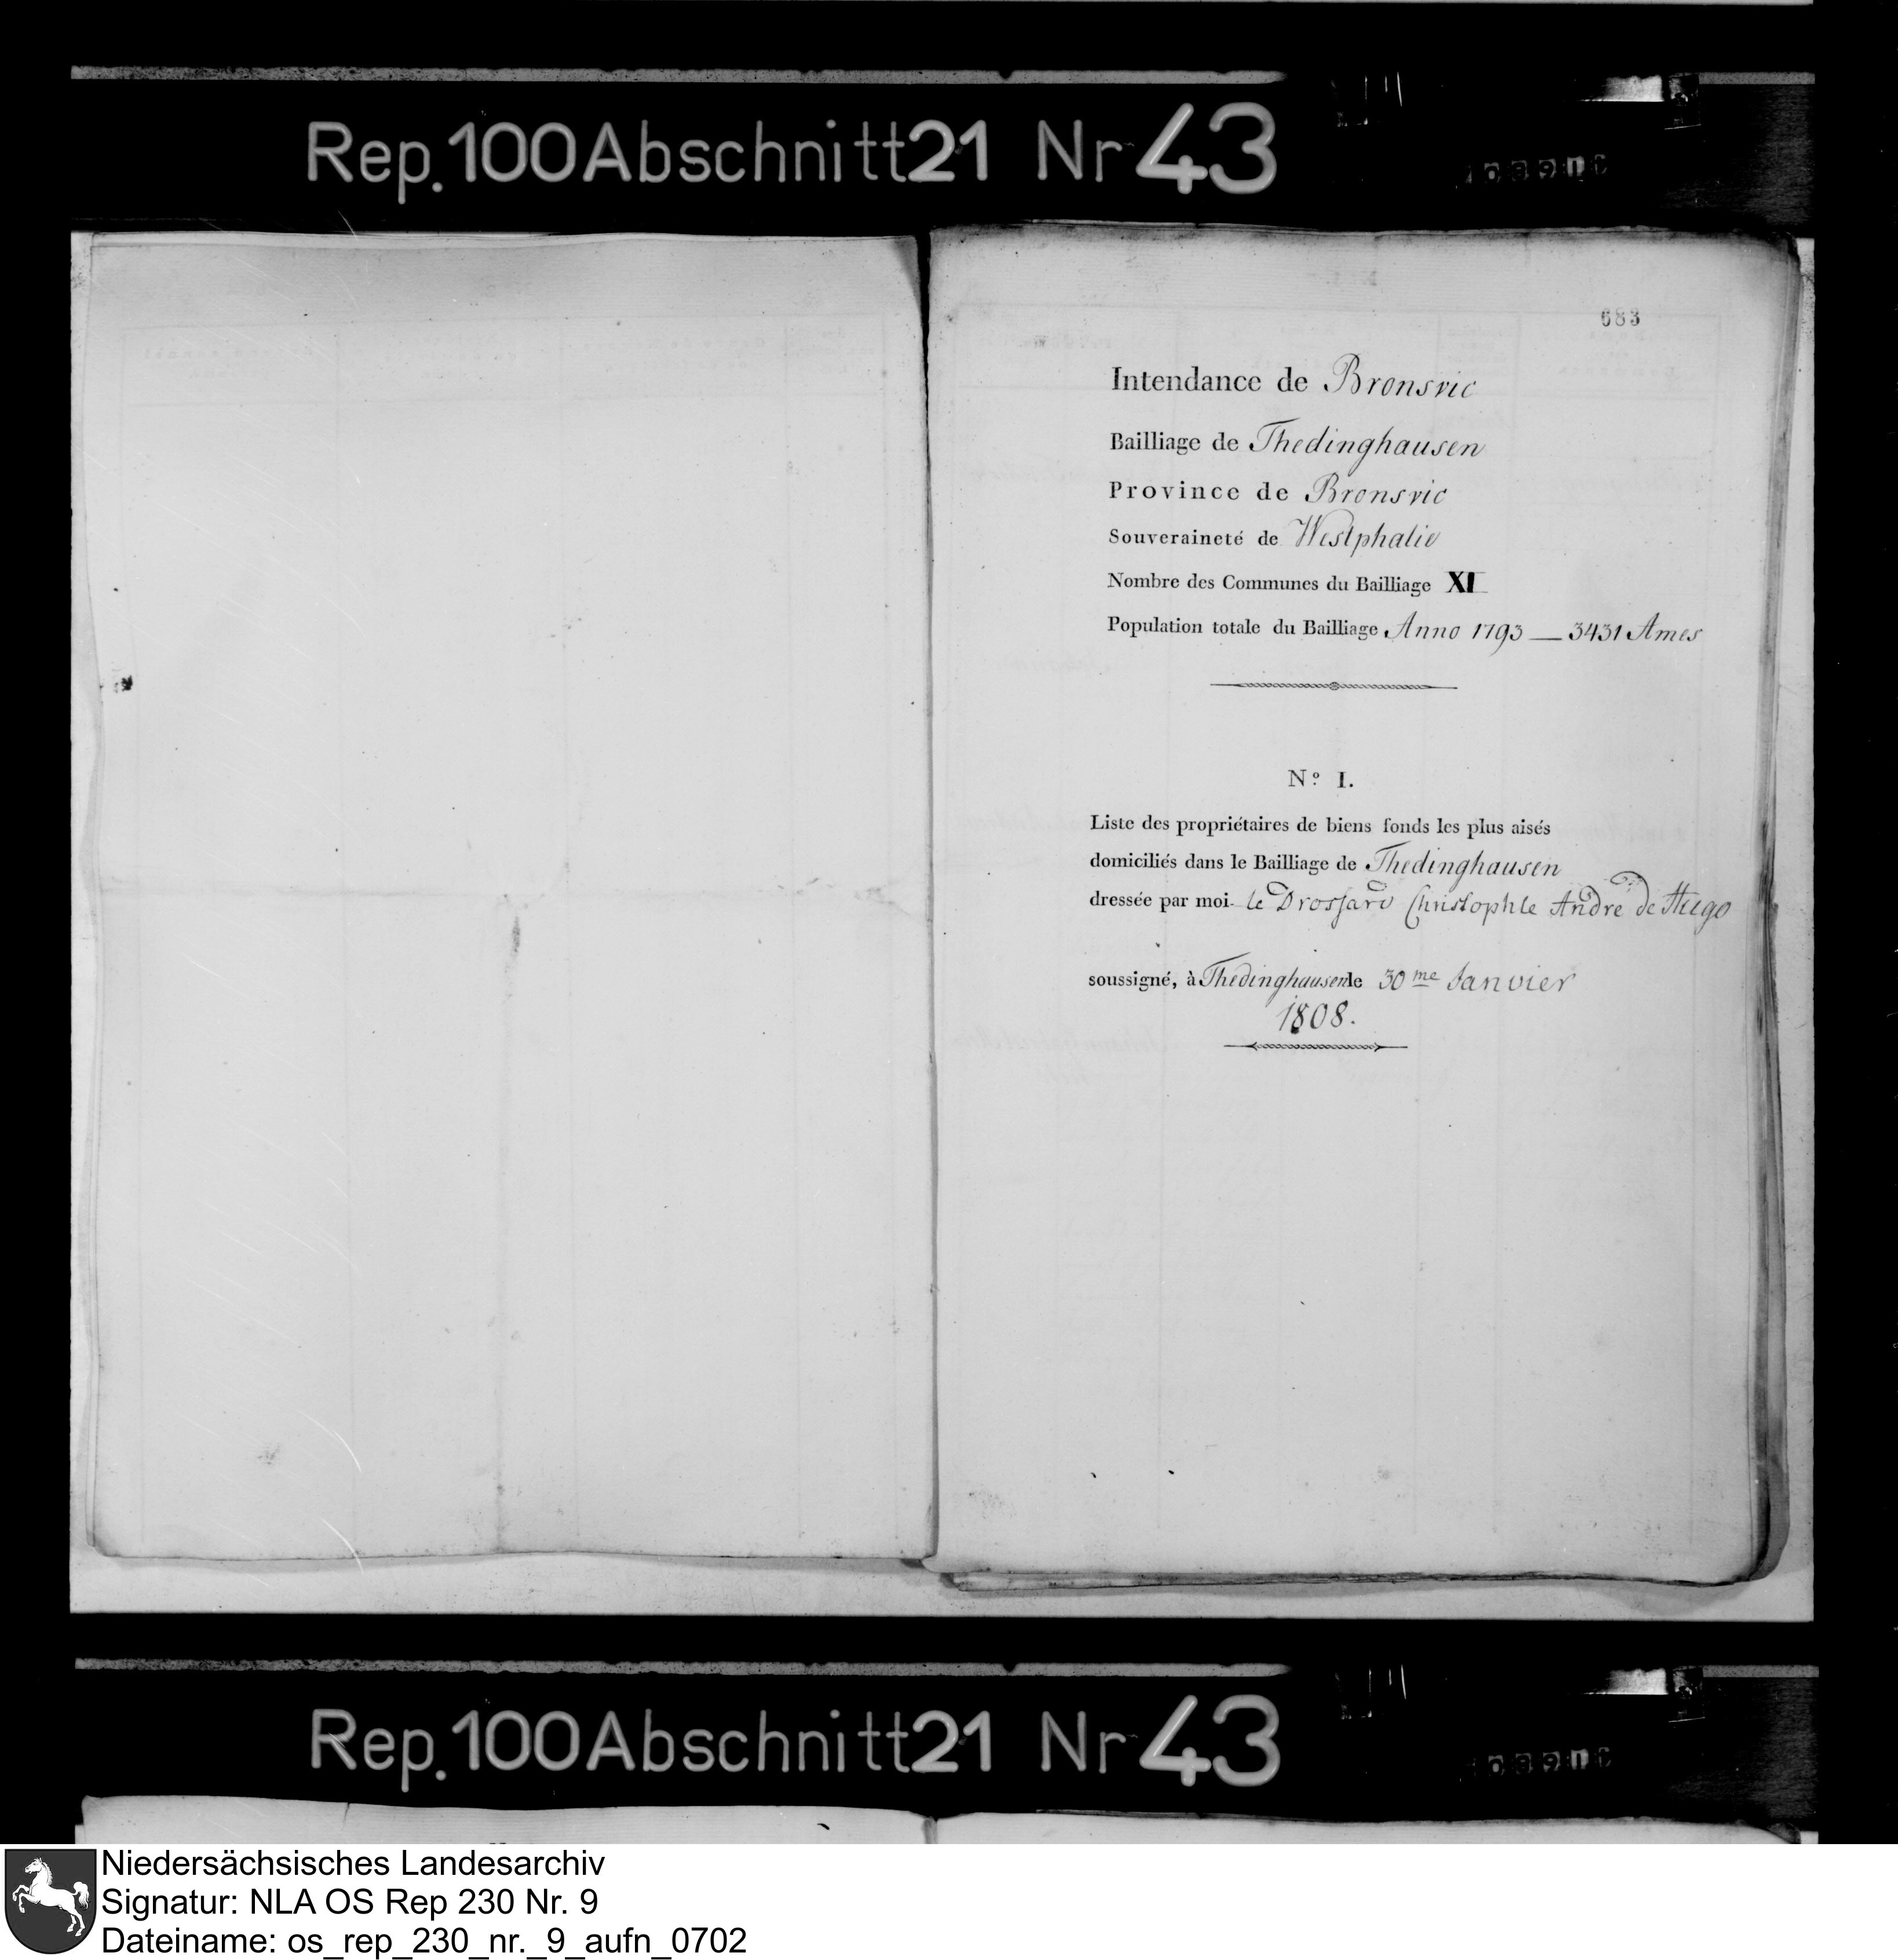 Rep. 100 Abschnitt 21 Nr 43
683
Intendance de Bronsvic
Bailliage de Thedinghausen
Province de Bronsvic
Souveraineté de Westphalie
Nombre des Communes du Bailliage XI
Population totale du Bailliage Anno 1793 — 3431 Ames
Nº I.
Liste des propriétaires de biens fonds les plus aisés
domiciliés dans le Bailliage de Thedinghausen
dressée par moi le Drossard Christophle André de Hugo
soussigné, à Thedinghausen le 30me Janvier
1808.
Rep. 100 Abschnitt 21 Nr 43
Niedersächsisches Landesarchiv
Signatur: NLA OS Rep 230 Nr. 9
Dateiname: os_rep_230_nr._9_aufn_0702